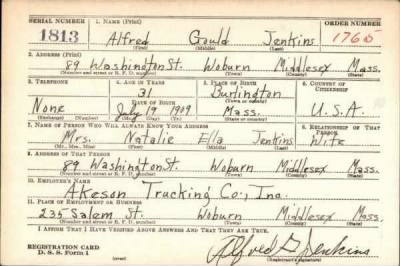 SERIAL NUMBER 1. NAME (Print) ORDER NUMBER
1813 Alfred Gould Jenkins 1765
(First) (Middle) (Last)
2. ADDRESS (Print)
89 Washington St. Woburn Middlesex Mass.
(Number and street or R. F. D. number) (Town) (County) (State)
3. TELEPHONE 4. AGE IN YEARS 5. PLACE OF BIRTH 6. COUNTRY OF CITIZENSHIP
31 Burlington
None DATE OF BIRTH (Town or county)
July 19 1909 Mass. U.S.A.
(Exchange) (No.) (Mo.) (Day) (Yr.) (State or country)
7. NAME OF PERSON WHO WILL ALWAYS KNOW YOUR ADDRESS 8. RELATIONSHIP OF THAT PERSON
Mrs. Natalie Ella Jenkins Wife
(Mr., Mrs., Miss) (First) (Middle) (Last)
9. ADDRESS OF THAT PERSON
89 Washington St. Woburn Middlesex Mass.
(Number and street or R. F. D. number) (Town) (County) (State)
10. EMPLOYER'S NAME
Akeson Trucking Co., Inc.
11. PLACE OF EMPLOYMENT OR BUSINESS
235 Salem St. Woburn Middlesex Mass.
(Number and street or R. F. D. number) (Town) (County) (State)
I AFFIRM THAT I HAVE VERIFIED ABOVE ANSWERS AND THAT THEY ARE TRUE.
REGISTRATION CARD
D. S. S. Form 1 Alfred G. Jenkins
(Registrant's signature)